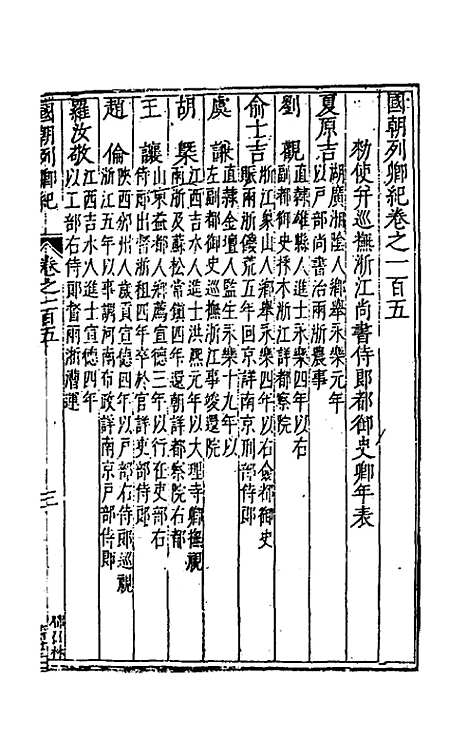 國朝列卿紀卷之一百五
勑使弁巡撫浙江尚書侍郎都御史卿年表
夏原吉 湖廣湘陰人鄉舉永樂元年
以戶部尚書治兩浙農事
劉觀 直隸雄縣人進士永樂四年以右
副都御史採木浙江詳都察院
俞士吉 浙江象山人鄉舉永樂四年以右僉都御史
賑兩浙饑荒五年回京詳南京刑部侍郎
虞謙 直隸金壇人監生永樂十九年以
左副都御史巡撫浙江事竣還院
胡槩 江西吉水人進士洪熙元年以大理寺卿撫視
兩浙及蘇松常鎮四年還朝詳都察院右都
王讓 山東益都人鄉薦宣德三年以行在吏部右
侍郎出督浙租四年卒於官詳吏部侍郎
趙倫 陝西邠州人歲貢宣德四年以戶部右侍郎巡視
浙江五年以事調河南布政詳南京戶部侍郎
羅汝敬 江西吉水人進士宣德四年
以工部右侍郎督兩浙漕運
國朝列卿紀 卷之一百五